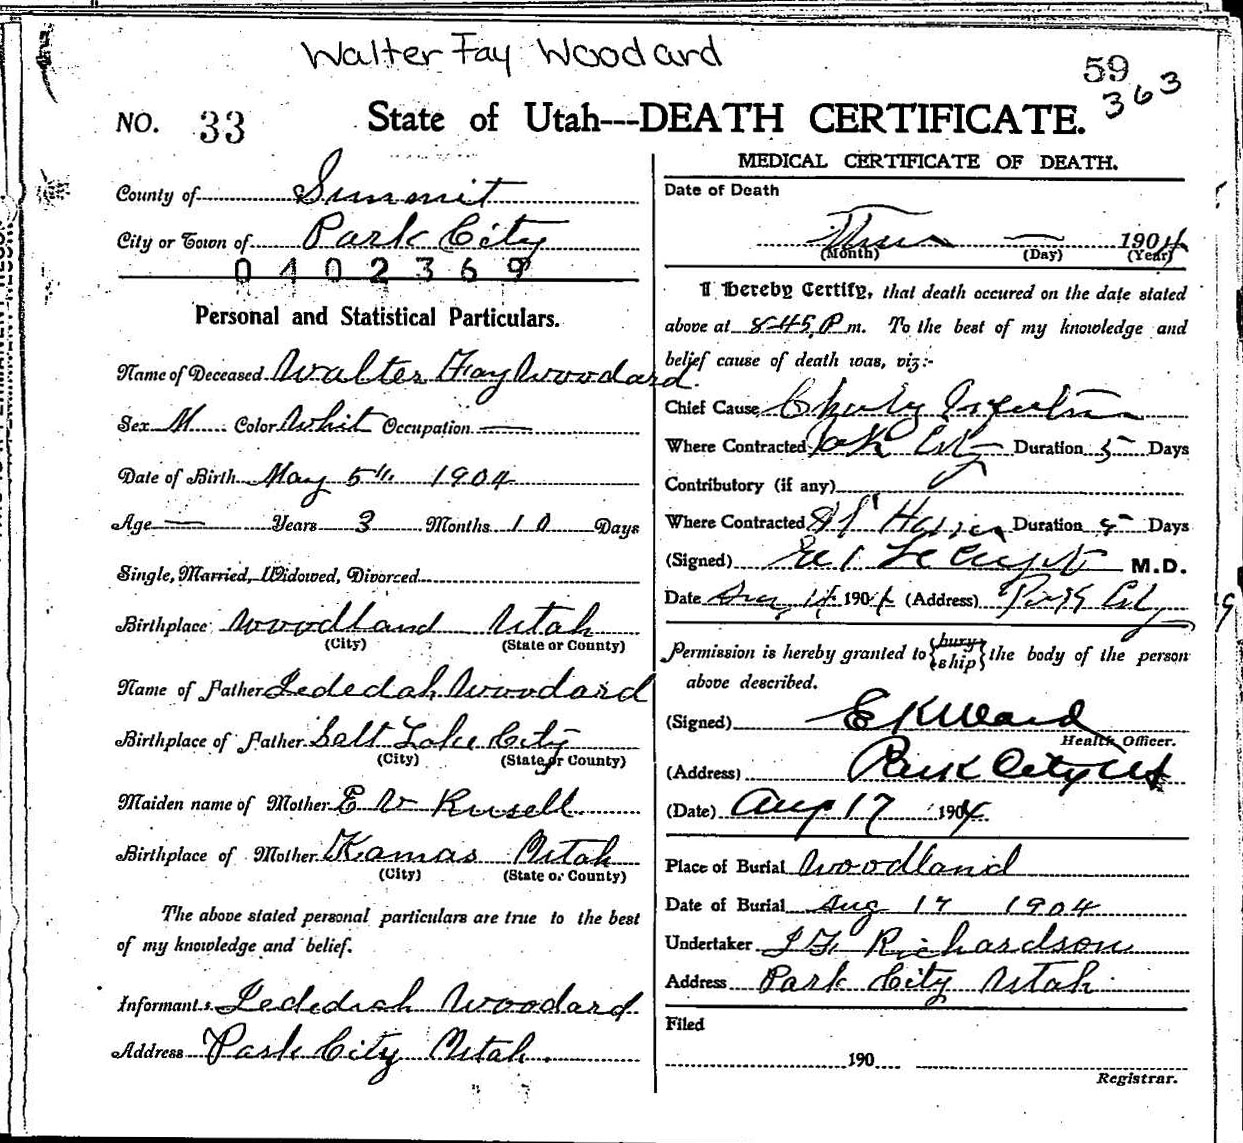 Walter Fay Woodard
59
363
NO. 33
State of Utah---DEATH CERTIFICATE.
County of Summit
City or Town of Park City
0402369
Personal and Statistical Particulars.
Name of Deceased Walter Fay Woodard.
Sex M Color Whit Occupation —
Date of Birth May 5th 1904
Age — Years 3 Months 10 Days
Single, Married, Widowed, Divorced
Birthplace Woodland Utah
(City) (State or County)
Name of Father Jededah Woodard
Birthplace of Father Salt Lake City
(City) (State or County)
Maiden name of Mother E V Russell
Birthplace of Mother Kamas Utah
(City) (State or County)
The above stated personal particulars are true to the best
of my knowledge and belief.
Informant Jedediah Woodard
Address Park City Utah.
MEDICAL CERTIFICATE OF DEATH.
Date of Death
— 1904
(Month) (Day) (Year)
I hereby Certify, that death occured on the date stated
above at 845 P m. To the best of my knowledge and
belief cause of death was, viz:-
Chief Cause
Where Contracted Park City Duration 5 Days
Contributory (if any)
Where Contracted Duration 5 Days
(Signed) M.D.
Date Aug 14 1904 (Address) Park City
Permission is hereby granted to {bury ship} the body of the person
above described.
(Signed) E K Ward
Health Officer.
(Address) Park City Ut
(Date) Aug 17 1904.
Place of Burial Woodland
Date of Burial Aug 17 1904
Undertaker Richardson
Address Park City Utah.
Filed
190
Registrar.